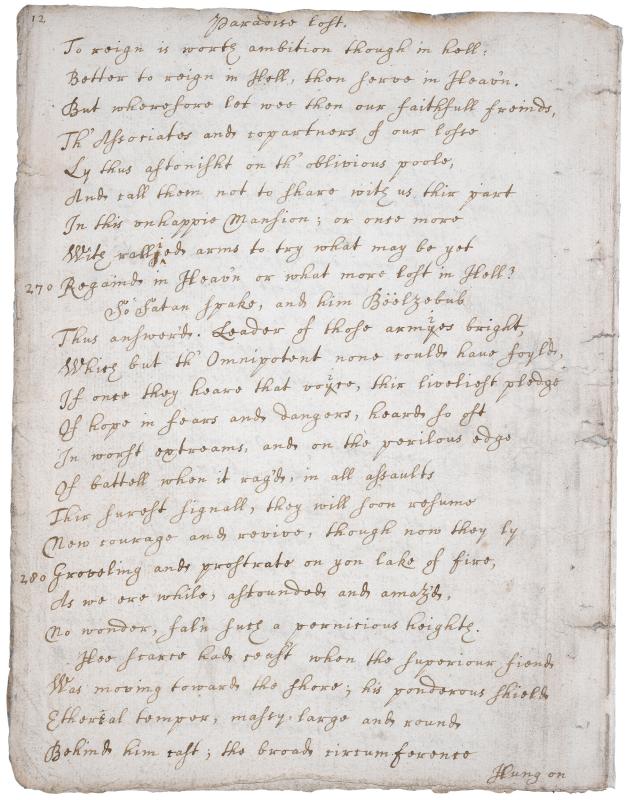 12
Paradise lost.
To reign is worth ambition though in hell:
Better to reign in Hell, then serve in Heav'n.
But wherefore let wee then our faithfull freinds,
Th' Associates and copartners of our losse
Ly thus astonisht on th' oblivious poole,
And call them not to share with us thir part
In this unhappie Mansion; or once more
With rallied arms to try what may be yet
270 Regaind in Heav'n or what more lost in Hell?
So Satan spake, and him Bëëlzebub
Thus answerd. Leader of those armies bright,
Which but th' Omnipotent none could have foyld,
If once they heare that voice, thir liveliest pledge
Of hope in fears and dangers, heard so oft
In worst extreams, and on the perilous edge
Of battell when it rag'd, in all assaults
Thir surest signall, they will soon resume
New courage and revive, though now they ly
280 Groveling and prostrate on yon lake of fire,
As we ere while, astounded and amaz'd,
No wonder, fal'n such a pernicious heighth.
Hee scarce had ceas't when the superiour fiend
Was moving toward the shore; his ponderous shield
Ethereal temper, massy, large and round
Behind him cast; the broad circumference
Hung on